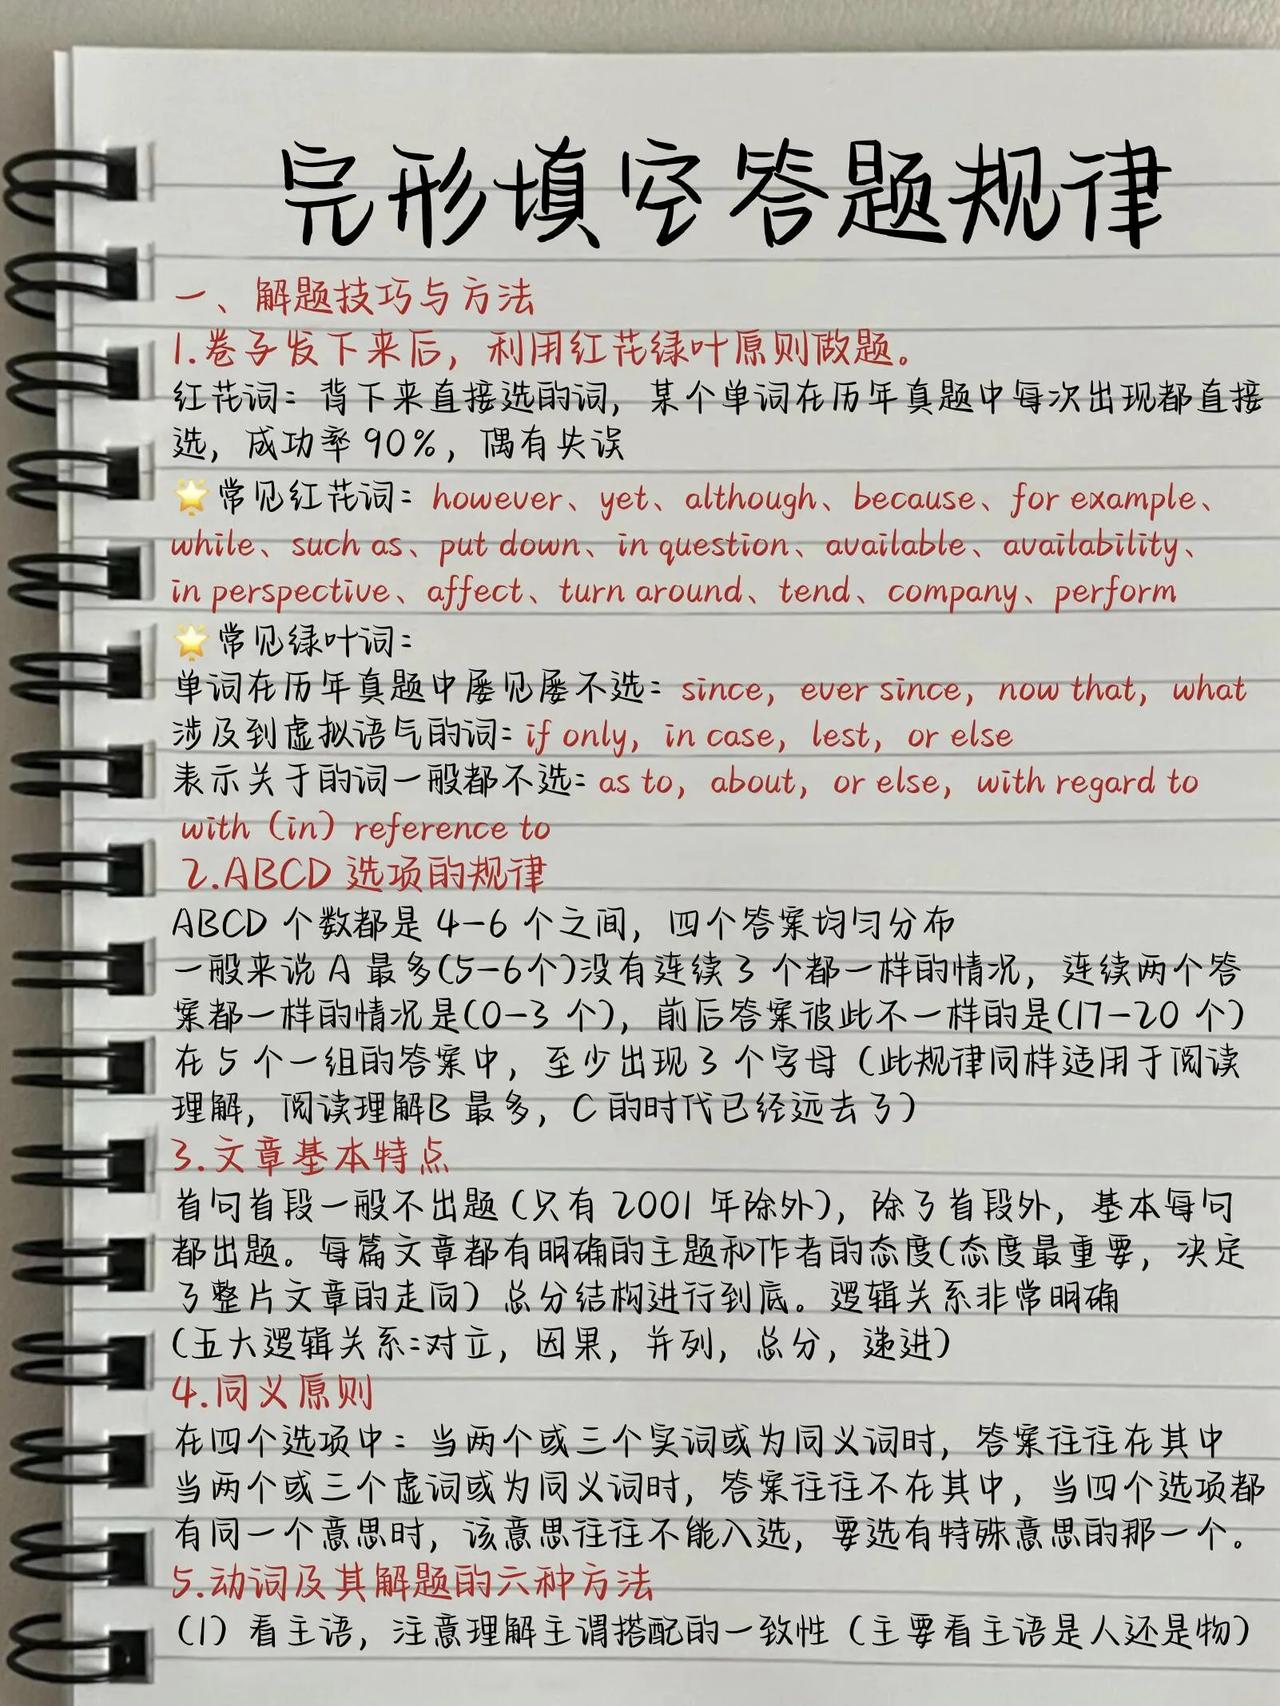 完形填空答题规律
一、解题技巧与方法
1.卷子发下来后，利用红花绿叶原则做题。
红花词：背下来直接选的词，某个单词在历年真题中每次出现都直接
选，成功率90%，偶有失误
🌟常见红花词：however、yet、although、because、for example、
while、such as、put down、in question、available、availability、
in perspective、affect、turn around、tend、company、perform
🌟常见绿叶词：
单词在历年真题中屡见屡不选：since，ever since，now that，what
涉及到虚拟语气的词：if only，in case，lest，or else
表示关于的词一般都不选：as to，about，or else，with regard to
with（in）reference to
2.ABCD 选项的规律
ABCD 个数都是 4-6 个之间，四个答案均匀分布
一般来说 A 最多(5-6个)没有连续 3 个都一样的情况，连续两个答
案都一样的情况是(0-3 个)，前后答案彼此不一样的是(17-20 个)
在 5 个一组的答案中，至少出现 3 个字母（此规律同样适用于阅读
理解，阅读理解B 最多，C 的时代已经远去了）
3.文章基本特点
首句首段一般不出题（只有 2001 年除外），除了首段外，基本每句
都出题。每篇文章都有明确的主题和作者的态度(态度最重要，决定
了整片文章的走向）总分结构进行到底。逻辑关系非常明确
(五大逻辑关系:对立，因果，并列，总分，递进)
4.同义原则
在四个选项中：当两个或三个实词或为同义词时，答案往往在其中
当两个或三个虚词或为同义词时，答案往往不在其中，当四个选项都
有同一个意思时，该意思往往不能入选，要选有特殊意思的那一个。
5.动词及其解题的六种方法
（1）看主语，注意理解主谓搭配的一致性（主要看主语是人还是物）